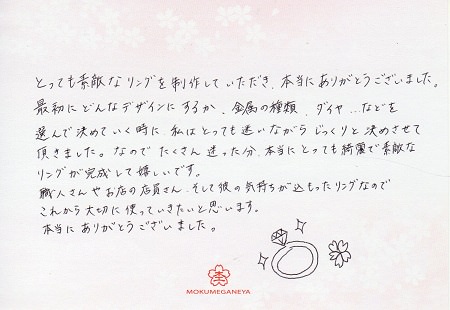 とっても素敵なリングを制作していただき、本当にありがとうございました。
最初にどんなデザインにするか、金属の種類、ダイヤ…などを
選んで決めていく時に、私はとっても迷いながらじっくりと決めさせて
頂きました。なのでたくさん迷った分、本当にとっても綺麗で素敵な
リングが完成して嬉しいです。
職人さんやお店の店員さん、そして彼の気持ちが込もったリングなので
これから大切に使っていきたいと思います。
本当にありがとうございました。
MOKUMEGANEYA